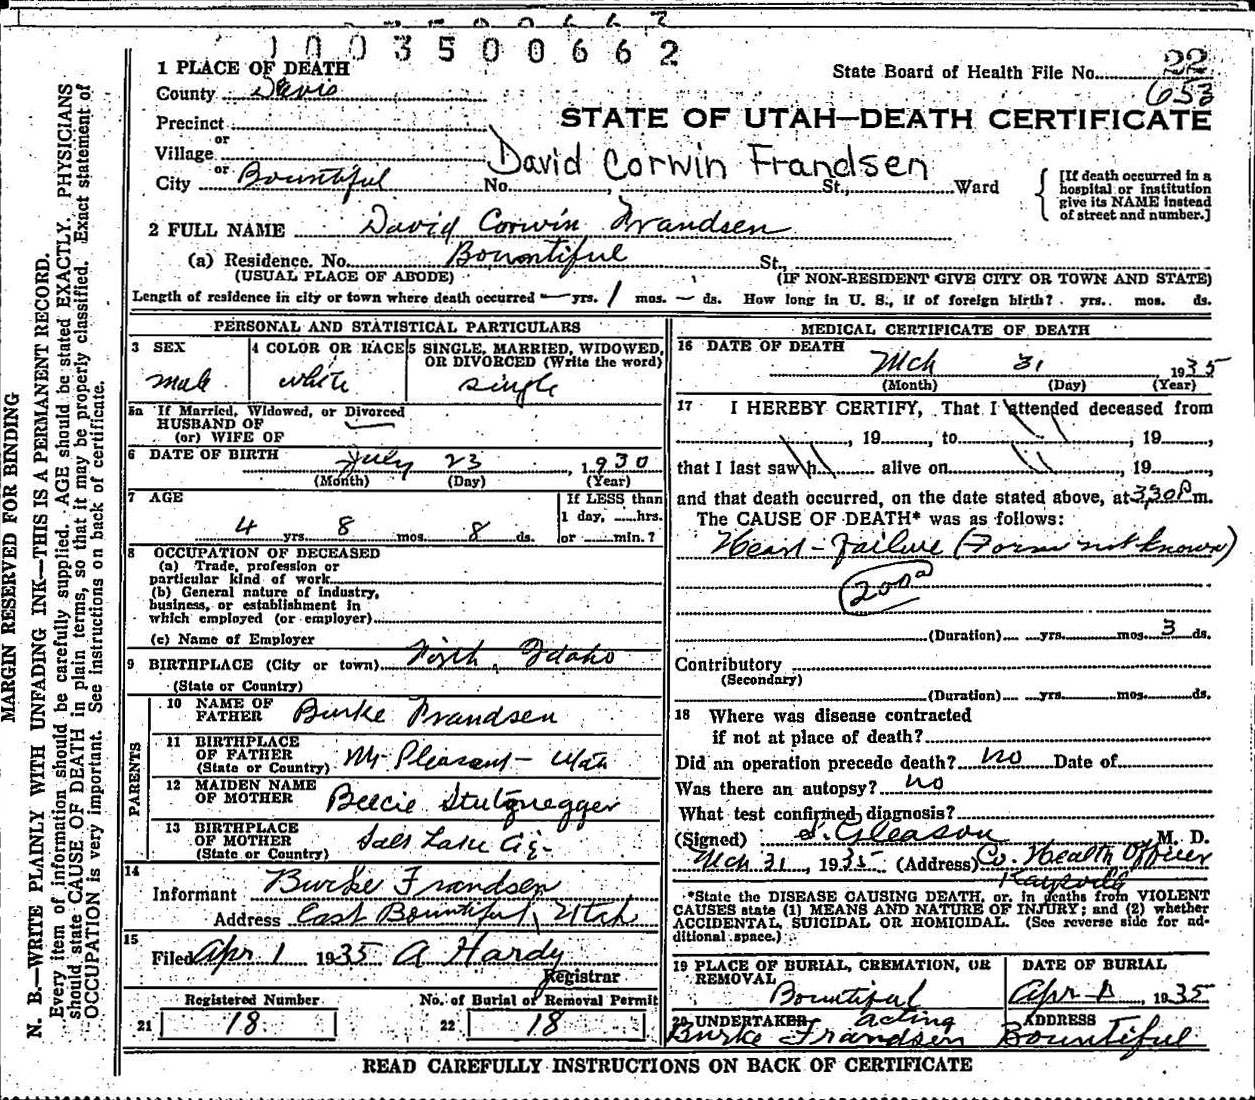 1003500662
1 PLACE OF DEATH
County Davis
State Board of Health File No. 22
653
Precinct
or
Village
or
City Bountiful No. , St., Ward
STATE OF UTAH—DEATH CERTIFICATE
David Corwin Frandsen
[If death occurred in a
hospital or institution
give its NAME instead
of street and number.]
2 FULL NAME David Corwin Frandsen
(a) Residence. No. Bountiful St.,
(USUAL PLACE OF ABODE) (IF NON-RESIDENT GIVE CITY OR TOWN AND STATE)
Length of residence in city or town where death occurred — yrs. 1 mos. — ds. How long in U. S., if of foreign birth? yrs. mos. ds.
PERSONAL AND STATISTICAL PARTICULARS
3 SEX
male
4 COLOR OR RACE
white
5 SINGLE, MARRIED, WIDOWED,
OR DIVORCED (Write the word)
single
5a If Married, Widowed, or Divorced
HUSBAND OF
(or) WIFE OF
6 DATE OF BIRTH July 23, 1930
(Month) (Day) (Year)
7 AGE
4 yrs. 8 mos. 8 ds.
If LESS than
1 day, ......hrs.
or ......min.?
8 OCCUPATION OF DECEASED
(a) Trade, profession or
particular kind of work
(b) General nature of industry,
business, or establishment in
which employed (or employer)
(c) Name of Employer
9 BIRTHPLACE (City or town) Firth, Idaho
(State or Country)
PARENTS
10 NAME OF
FATHER Burke Frandsen
11 BIRTHPLACE
OF FATHER
(State or Country) Mt Pleasant - Utah
12 MAIDEN NAME
OF MOTHER Beecie Stutznegger
13 BIRTHPLACE
OF MOTHER
(State or Country) Salt Lake City-
14
Informant Burke Frandsen
Address East Bountiful, Utah
15
Filed Apr 1 1935 A Hardy
Registrar
Registered Number
21 18
No. of Burial or Removal Permit
22 18
MEDICAL CERTIFICATE OF DEATH
16 DATE OF DEATH
Mch 31 1935
(Month) (Day) (Year)
17 I HEREBY CERTIFY, That I attended deceased from
, 19 , to , 19 ,
that I last saw h alive on , 19 ,
and that death occurred, on the date stated above, at 3:30 P m.
The CAUSE OF DEATH* was as follows:
Heart-Failure (Form not known)
200a
(Duration) yrs. mos. 3 ds.
Contributory
(Secondary)
(Duration) yrs. mos. ds.
18 Where was disease contracted
if not at place of death?
Did an operation precede death? no Date of
Was there an autopsy? no
What test confirmed diagnosis?
(Signed) S. Gleason M. D.
Mch 31, 1935 (Address) Co. Health Officer
Kaysville
*State the DISEASE CAUSING DEATH, or, in deaths from VIOLENT
CAUSES state (1) MEANS AND NATURE OF INJURY; and (2) whether
ACCIDENTAL, SUICIDAL OR HOMICIDAL. (See reverse side for ad-
ditional space.)
19 PLACE OF BURIAL, CREMATION, OR
REMOVAL
Bountiful
DATE OF BURIAL
Apr 1, 1935
20 UNDERTAKER acting
Burke Frandsen
ADDRESS
Bountiful
READ CAREFULLY INSTRUCTIONS ON BACK OF CERTIFICATE
MARGIN RESERVED FOR BINDING
N. B.—WRITE PLAINLY WITH UNFADING INK—THIS IS A PERMANENT RECORD.
Every item of information should be carefully supplied. AGE should be stated EXACTLY. PHYSICIANS
should state CAUSE OF DEATH in plain terms, so that it may be properly classified. Exact statement of
OCCUPATION is very important. See instructions on back of certificate.